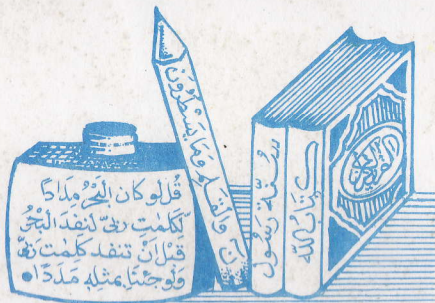 قُل لو كان البَحرُ مِدَادًا
لِّكلمٰتِ ربّى لنَفِدَ البَحْرُ
قبْلَ أنْ تنفد كلِمٰت رَبّى
ولو جئنَا بمثلِهٖ مَدَدًا
نٓ والقلم وما يسطرون
سنّة رسول
كتاب الله